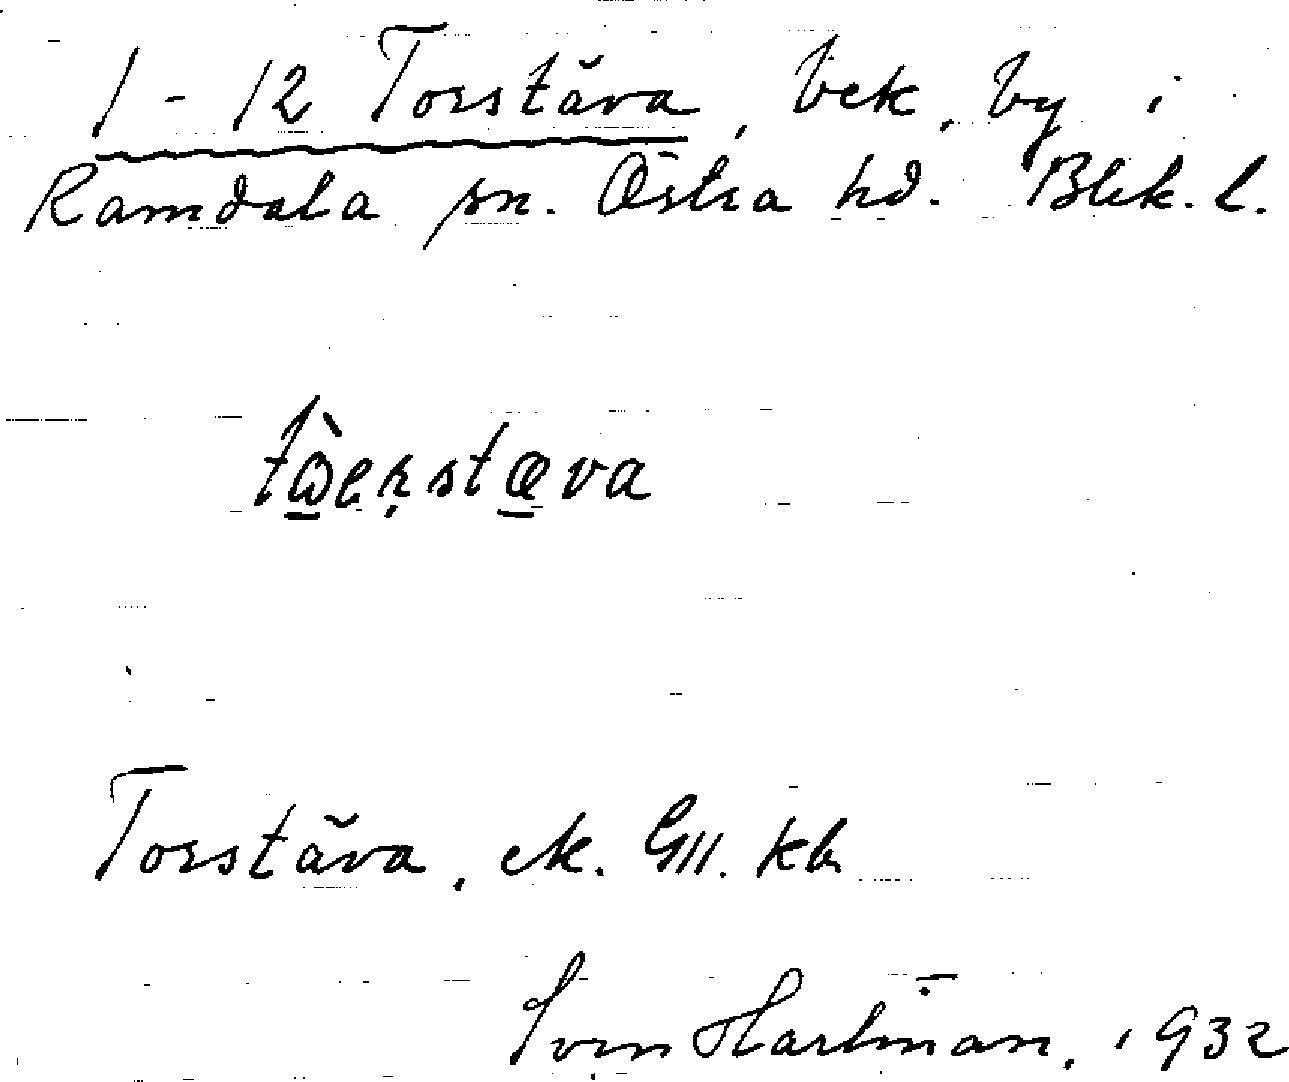 1 - 12 Torstäva, bek. by i
Ramdala sn. Östra hd. Blek. l.
Torstäva, ek. GIII. kb
Sven Hartman, 1932